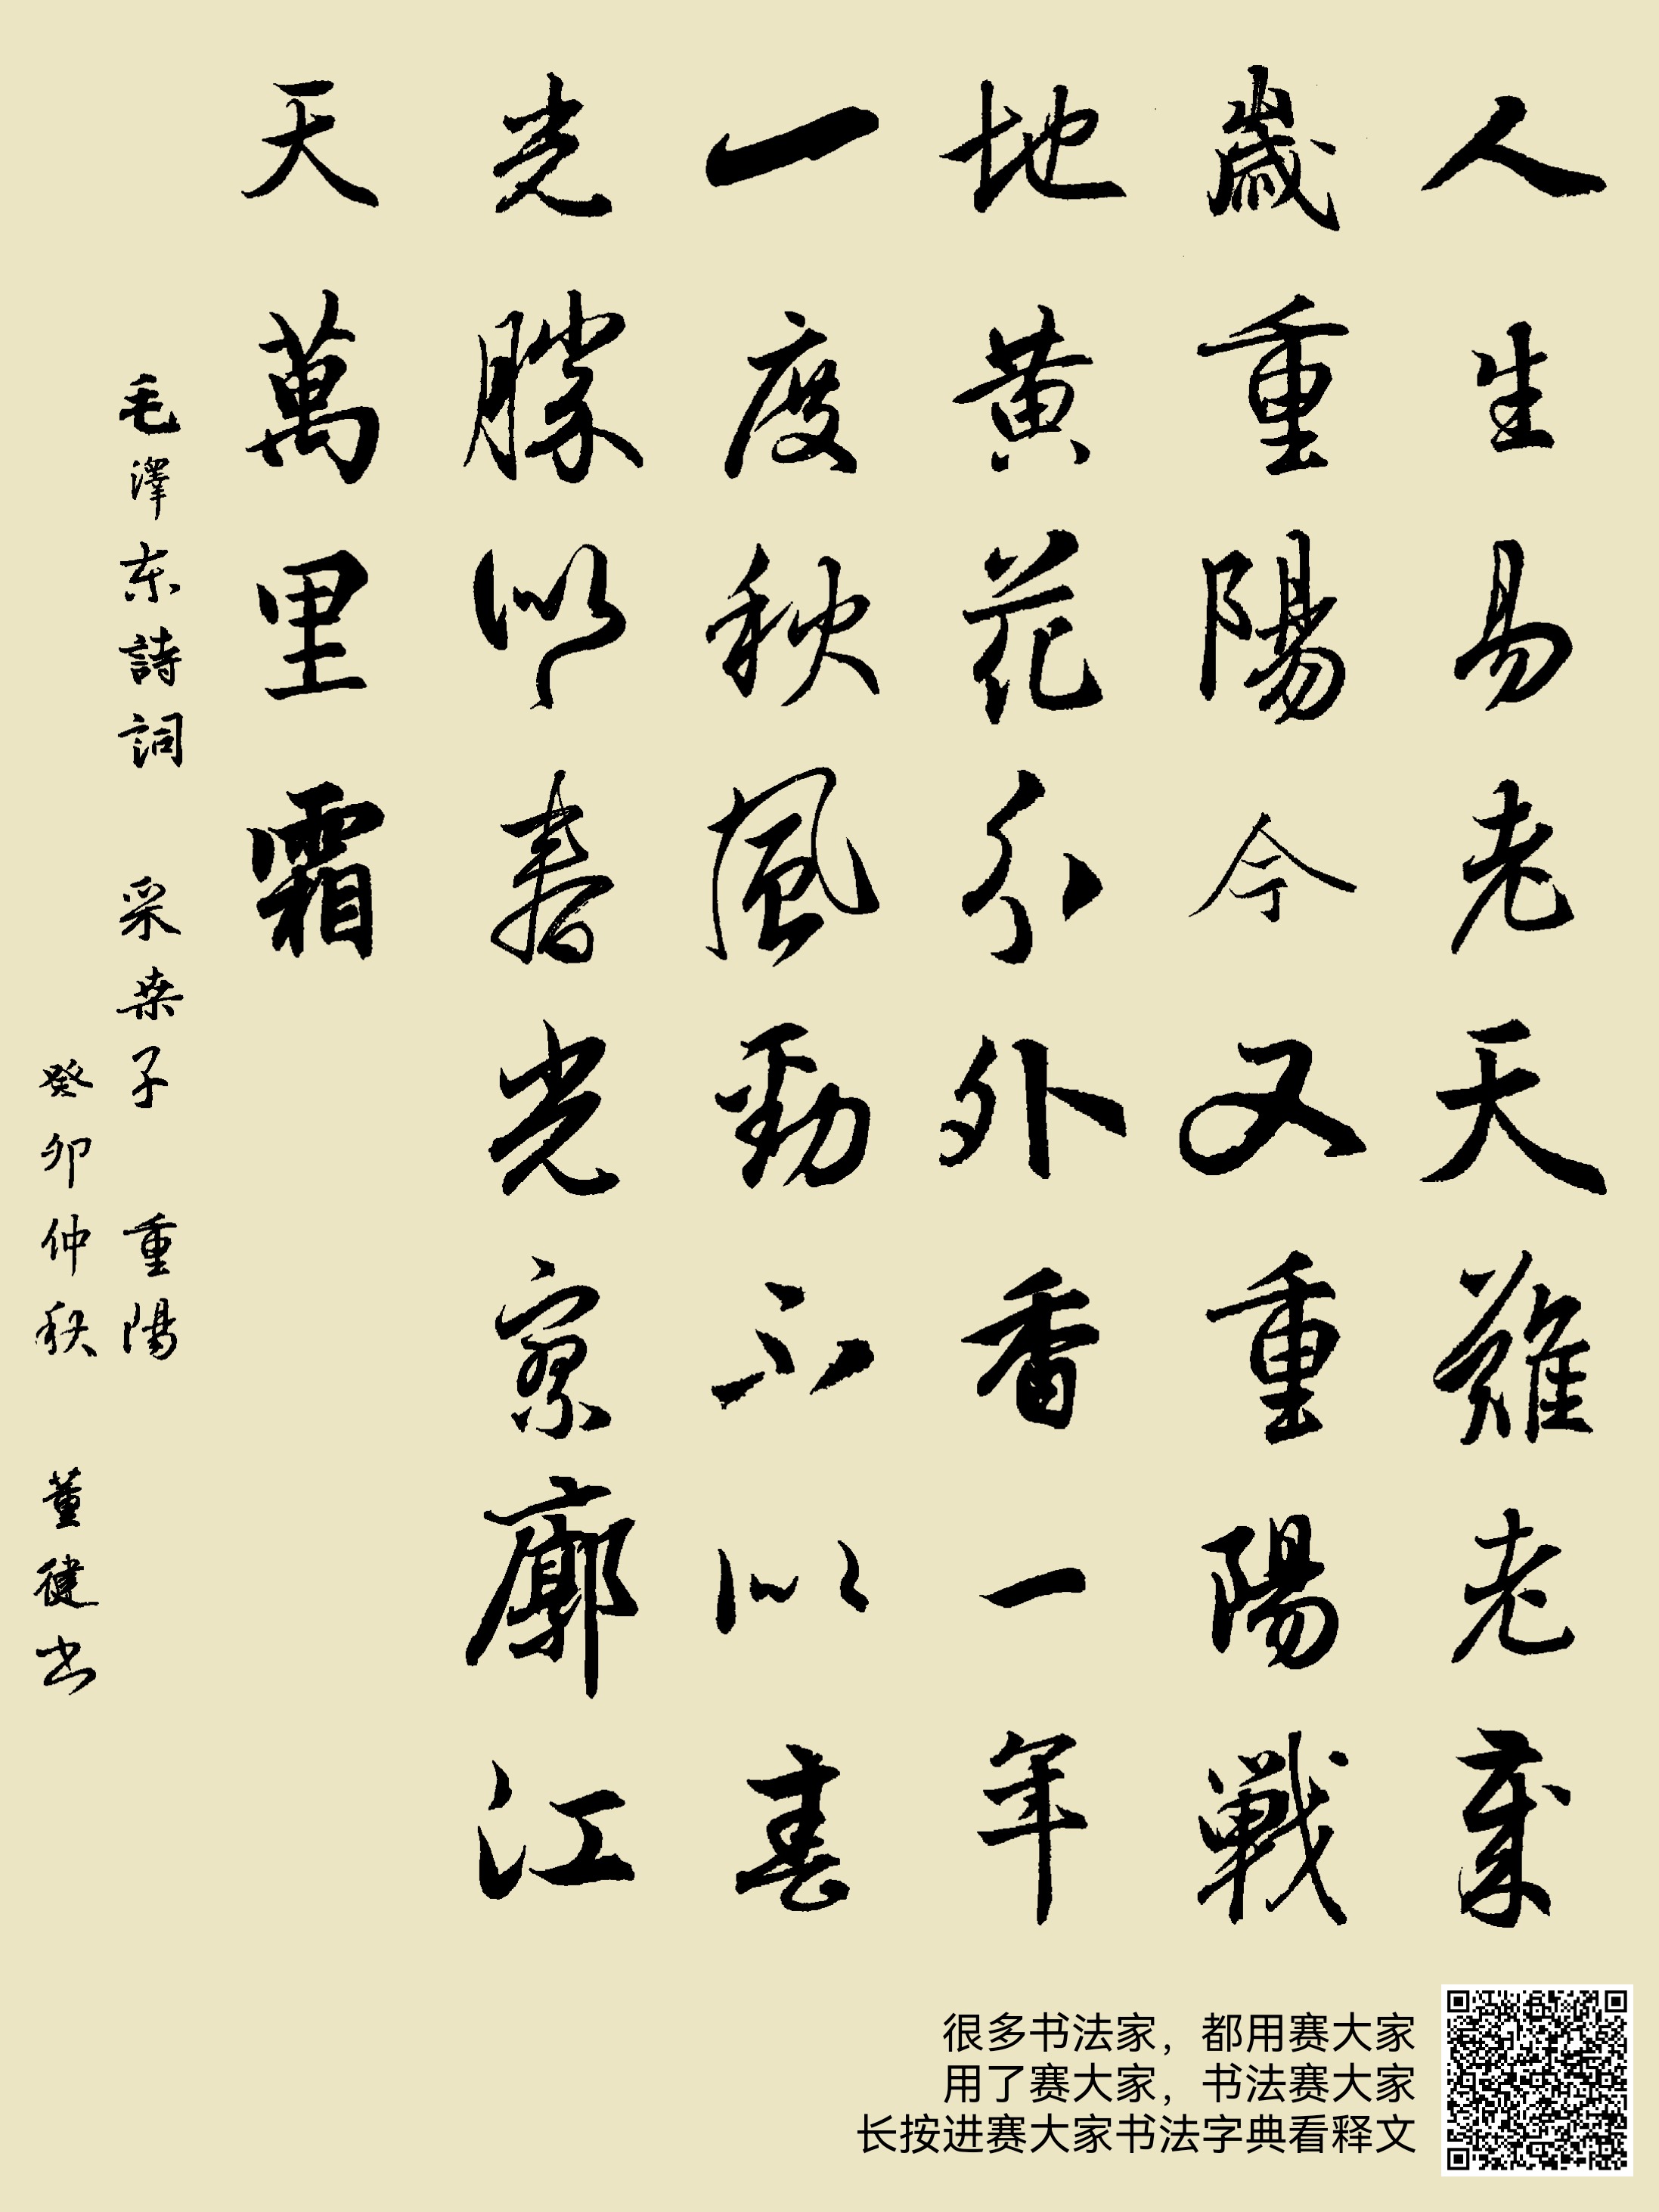 人生易老天難老歲
歲重陽今又重陽戰
地黄花分外香一年
一度秋風勁不似春
光勝似春光寥廓江
天萬里霜
毛澤东詩詞 采桑子 重陽
癸卯仲秋 董健书
很多书法家，都用赛大家
用了赛大家，书法赛大家
长按进赛大家书法字典看释文